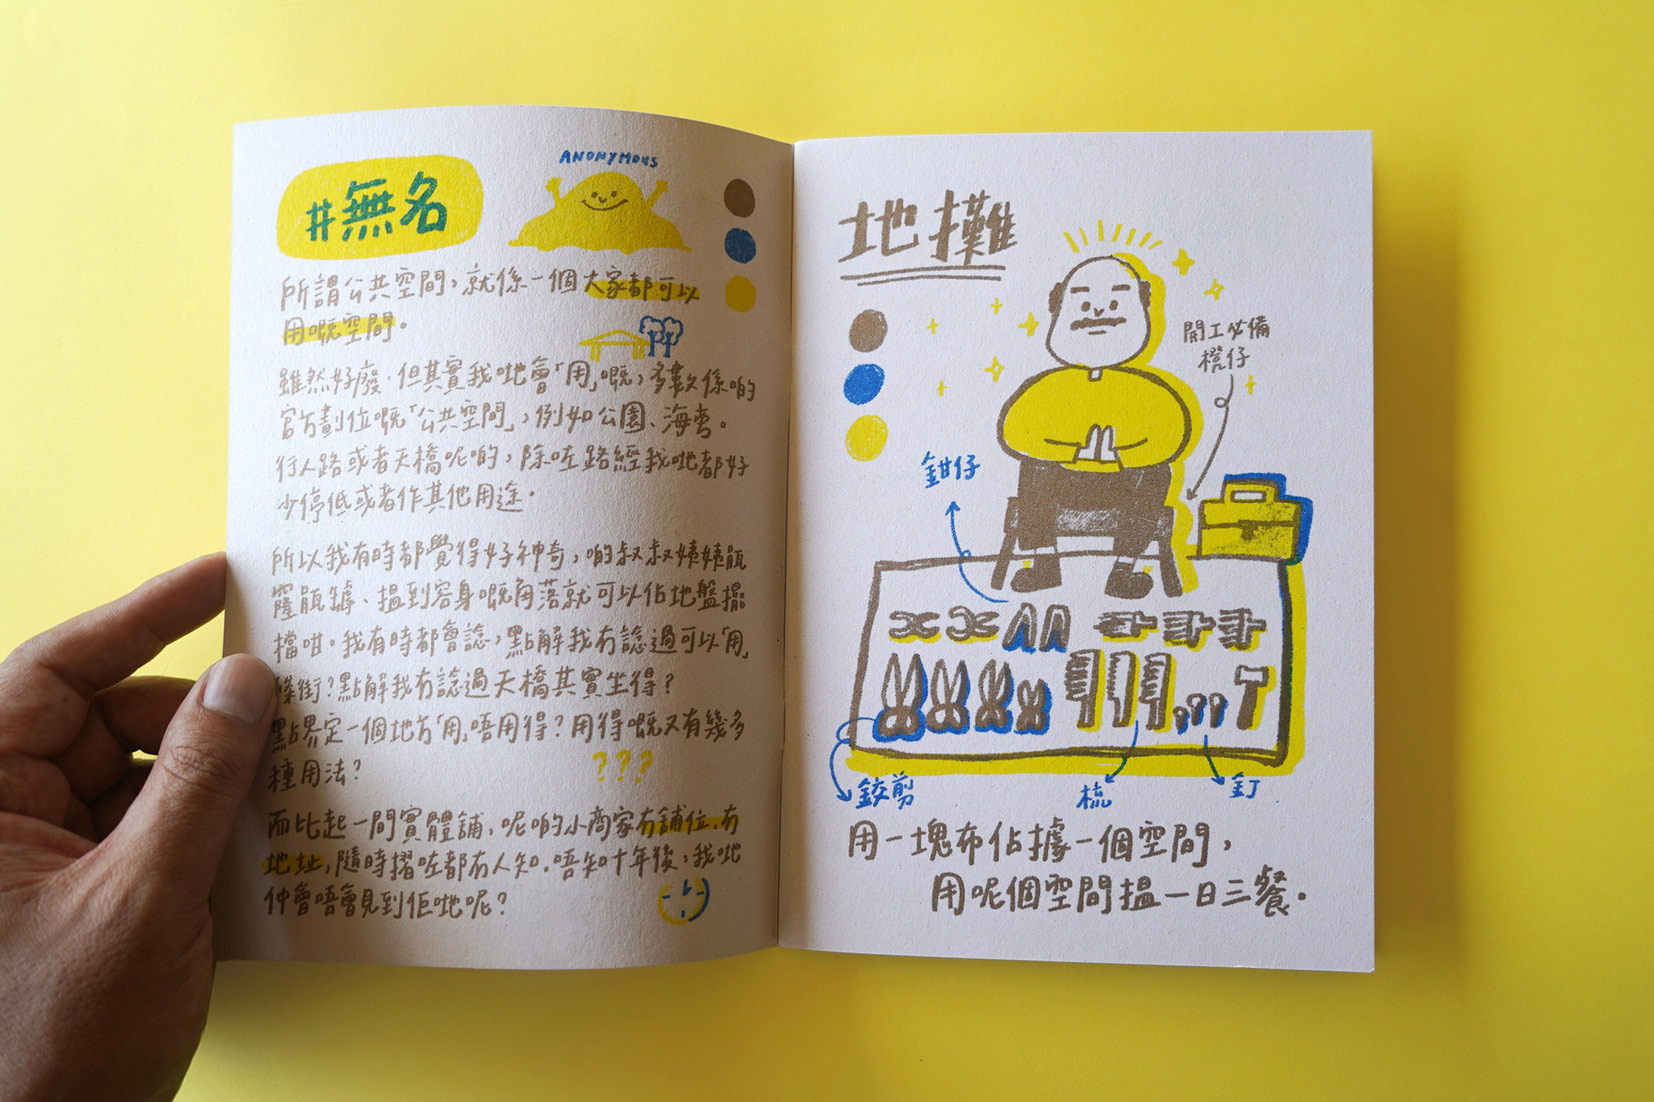 #無名
ANONYMOUS
所謂公共空間，就係一個大家都可以
用嘅空間。
雖然好廢，但其實我哋會「用」嘅，多數係啲
官方劃位嘅「公共空間」，例如公園、海旁。
行人路或者天橋呢啲，除咗路經我哋都好
少停低或者作其他用途。
所以我有時都覺得好神奇，啲叔叔姨姨瓹
窿瓹罅、搵到容身嘅角落就可以佔地盤擺
檔咁。我有時都會諗，點解我冇諗過可以「用」
條街？點解我冇諗過天橋其實坐得？
點界定一個地方「用」唔用得？用得嘅又有幾多
種用法？
???
而比起一間實體舖，呢啲小商家冇舖位、冇
地址，隨時摺咗都冇人知。唔知十年後，我哋
仲會唔會見到佢哋呢？
地攤
開工必備
櫈仔
鉗仔
鉸剪
梳
釘
用一塊布佔據一個空間，
用呢個空間搵一日三餐。